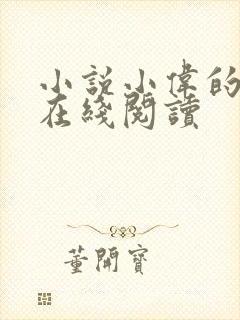 小説小偉的
在綫閱讀
董開寶